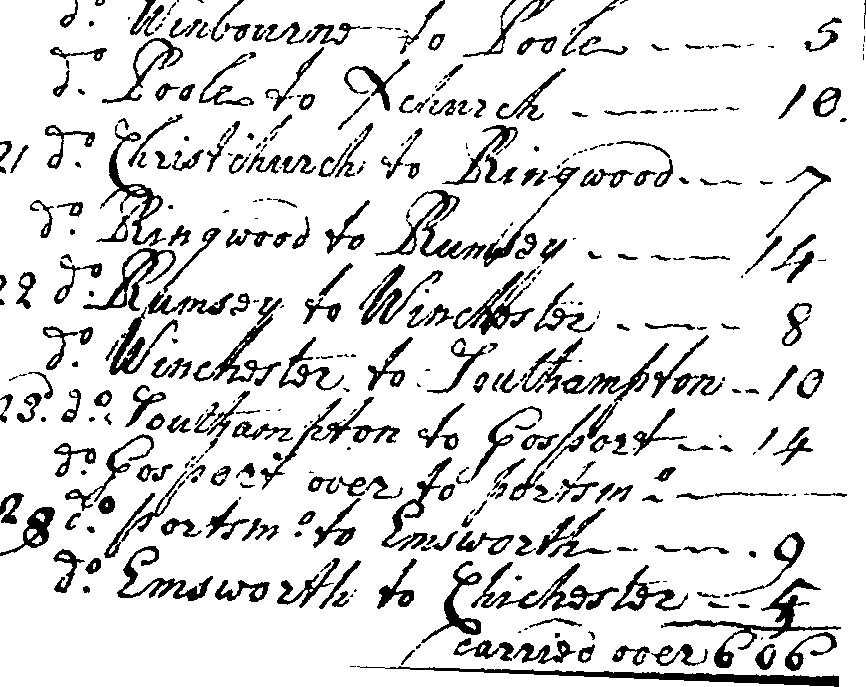 do. Winbourne to Poole ---- 5
do. Poole to Xchurch ---- 10.
21 do. Christchurch to Ringwood ---- 7
do. Ringwood to Rumsey ---- 14
22 do. Rumsey to Winchester ---- 8
do. Winchester to Southampton -- 10
23. do. Southampton to Gosport --- 14
do. Gosport over to portsmo. ----
28 do. portsmo. to Emsworth ---- 9
do. Emsworth to Chichester ---
carried over 606